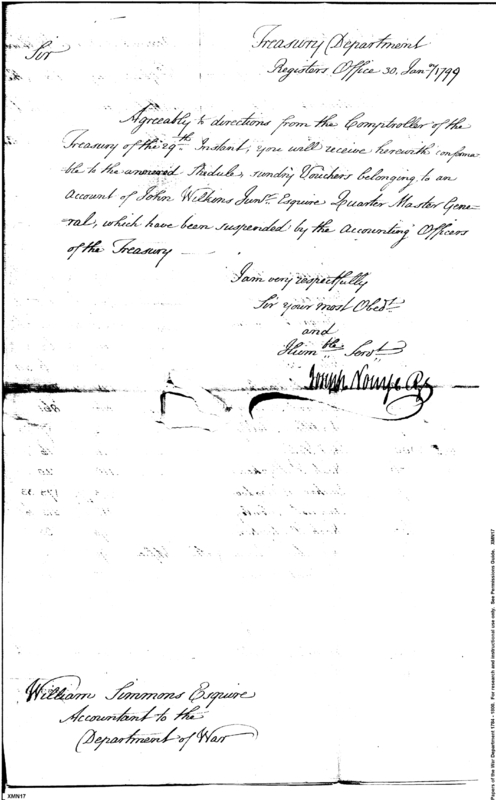 Treasury Department
Registers Office 30. Jany 1799
Sir
Agreeably to directions from the Comptroller of the
Treasury of the 29th Instant; you will receive herewith conforma-
ble to the annexed Shedule, sundry Vouchers belonging to an
Account of John Wilkins Junr. Esquire Quarter Master Gene-
ral; which have been suspended by the Accounting Officers
of the Treasury
I am very respectfully
Sir your most Obedt.
and
Hum ble Servt.
Joseph Nourse Rg
William Simmons Esquire
Accountant to the
Department of War
XMN17
Papers of the War Department 1784 - 1800. For research and instructional use only. See Permissions Guide. XMN17